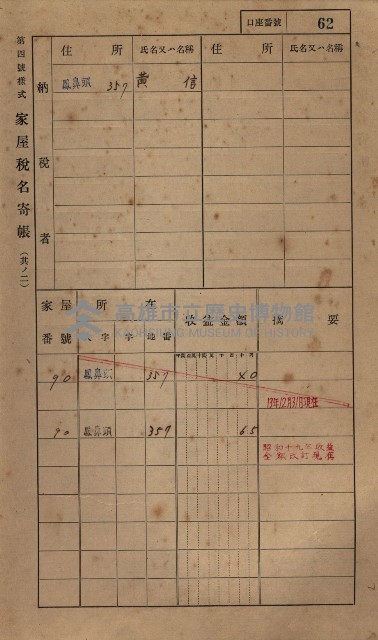 口座番號 62
第四號樣式 家屋稅名寄帳 (其ノ二)
納稅者
住所 氏名又ハ名稱 住所 氏名又ハ名稱
鳳鼻頭 357 黄信
家屋番號 所在 收益金額 摘要
大字 字 地番
高雄市立歷史博物館
KAOHSIUNG MUSEUM OF HISTORY
90 鳳鼻頭 357 40
19年12月31日現在
90 鳳鼻頭 357 65
昭和十九年收益
金額改訂現在